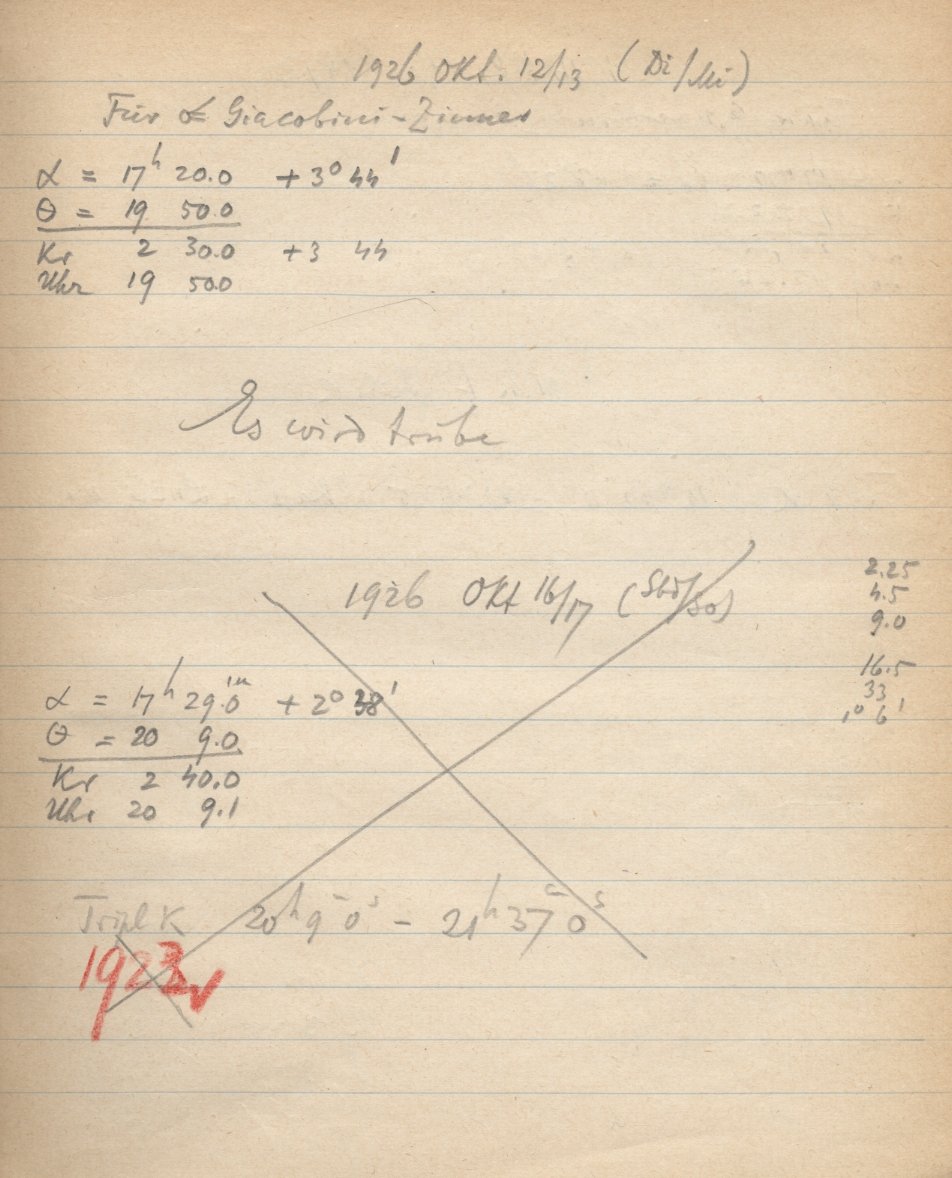 1926 Okt. 12/13 (Di/Mi)
Für ☄ Giacobini-Zinner
α = 17h 20.0 +3° 44'
θ = 19 50.0
Kr 2 30.0 +3 44
Uhr 19 50.0
Es wird trübe
1926 Okt 16/17 (Sbd/So)
2.25
4.5
9.0
16.5
33
1° 6'
α = 17h 29.0m +2° 38'
θ = 20 9.0
Kr 2 40.0
Uhr 20 9.1
Tripl K 20h 9m 0s – 21h 37m 0s
1923 ✓